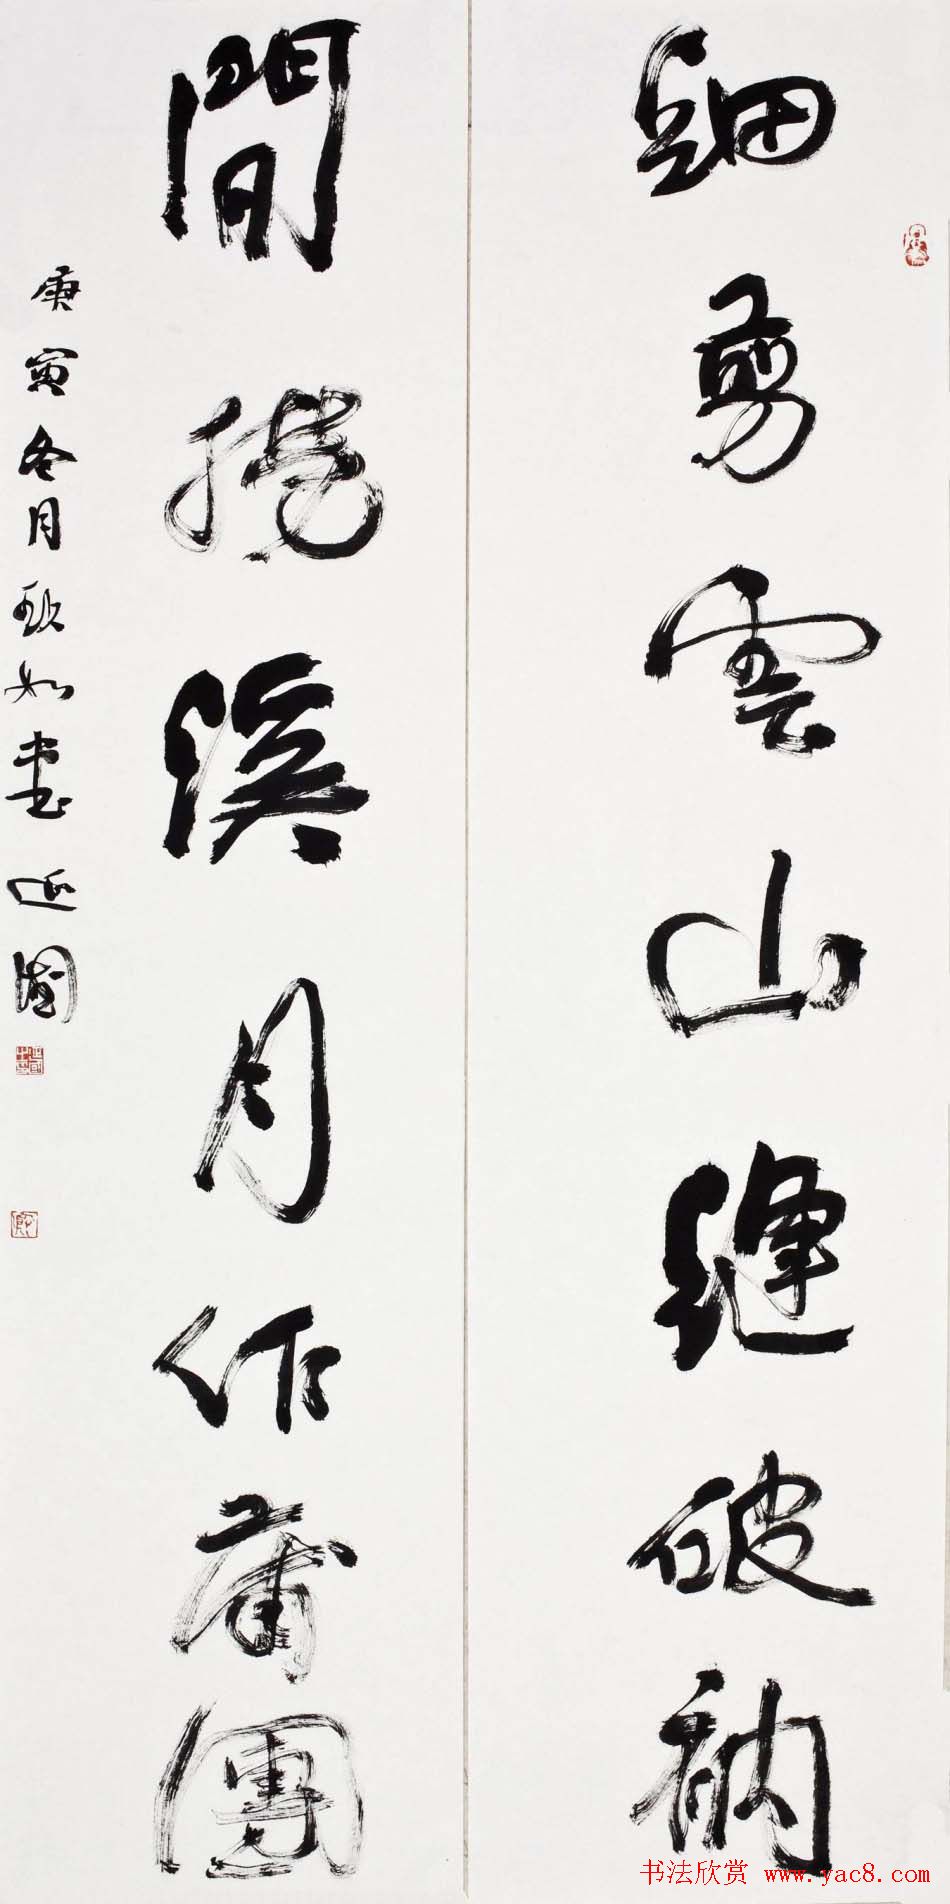 細剪雲山縫破衲
閒撈溪月作蒲團
庚寅冬月 如書 國
书法欣赏 www.yac8.com